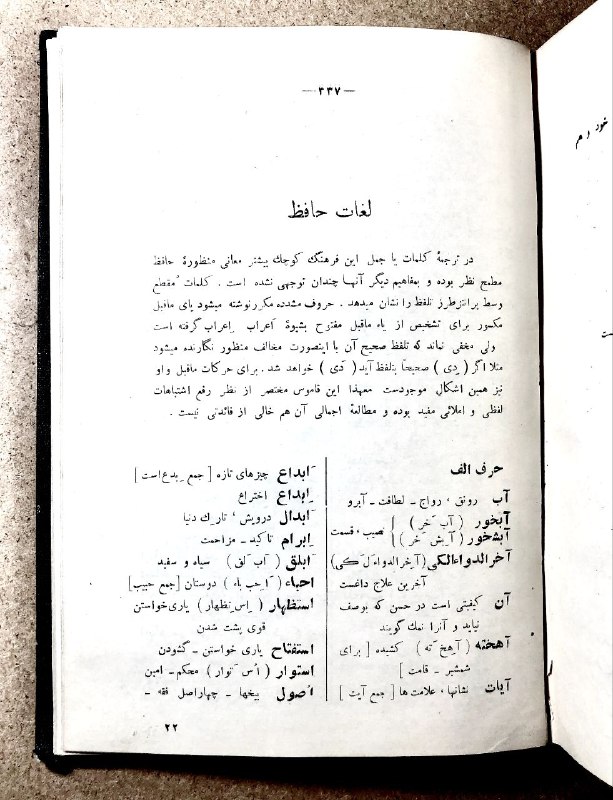 —۳۳۷—
لغات حافظ
در ترجمهٔ کلمات یا جمل این فرهنگ کوچك بیشتر معانی منظورهٔ حافظ
مطمح نظر بوده و بمفاهیم دیگر آنها چندان توجهی نشده است . کلمات مُقطع
وسط پرانتز طرز تلفظ را نشان میدهد . حروف مشدده مکرر نوشته میشود یای ماقبل
مکسور برای تشخیص از یاء ماقبل مفتوح بشیوهٔ اَعراب اِعراب گرفته است
ولی مخفی نماند که تلفظ صحیح آن با اینصورت مخالف منظور نگارنده میشود
مثلا اگر ( دِی ) صحیحاً بتلفظ آید ( دَی ) خواهد شد . برای حرکات ماقبل واو
نیز همین اشکال موجودست معهذا این قاموس مختصر از نظر رفع اشتباهات
لفظی و املائی مفید بوده و مطالعهٔ اجمالی آن هم خالی از فائدتی نیست .
حرف الف
آب رونق ، رواج ـ لطافت ـ آبرو
آبخور ( آب خَر )
آبشخور ( آبش خَر ) } نصیب ، قسمت
آخرالدواءالکی (آخِرالدواءُلْ کَی)
آخرین علاج داغست
آن کیفیتی است در حسن که بوصف
نیاید و آنرا نمك گویند
آهخته ( آهِخ تَه ) کشیده [ برای
شمشیر ـ قامت ]
آیات نشانها ، علامت ها [ جمع آیت ]
اَبداع چیزهای تازه [ جمع بِدع است ]
اِبداع اختراع
اَبدال درویش ، تارك دنیا
اِبرام تاکید ـ مزاحمت
اَبلق ( اَب لَق ) سیاه و سفید
احباء ( اَحِب باء ) دوستان [جمع حبیب]
استظهار ( اِس تظهار ) یاری خواستن
قوی پشت شدن
استفتاح یاری خواستن ـ گشودن
استوار ( اُس تُوار ) محکم ـ امین
اُصول بیخها ـ چهار اصل فقه ـ
۲۲
خود